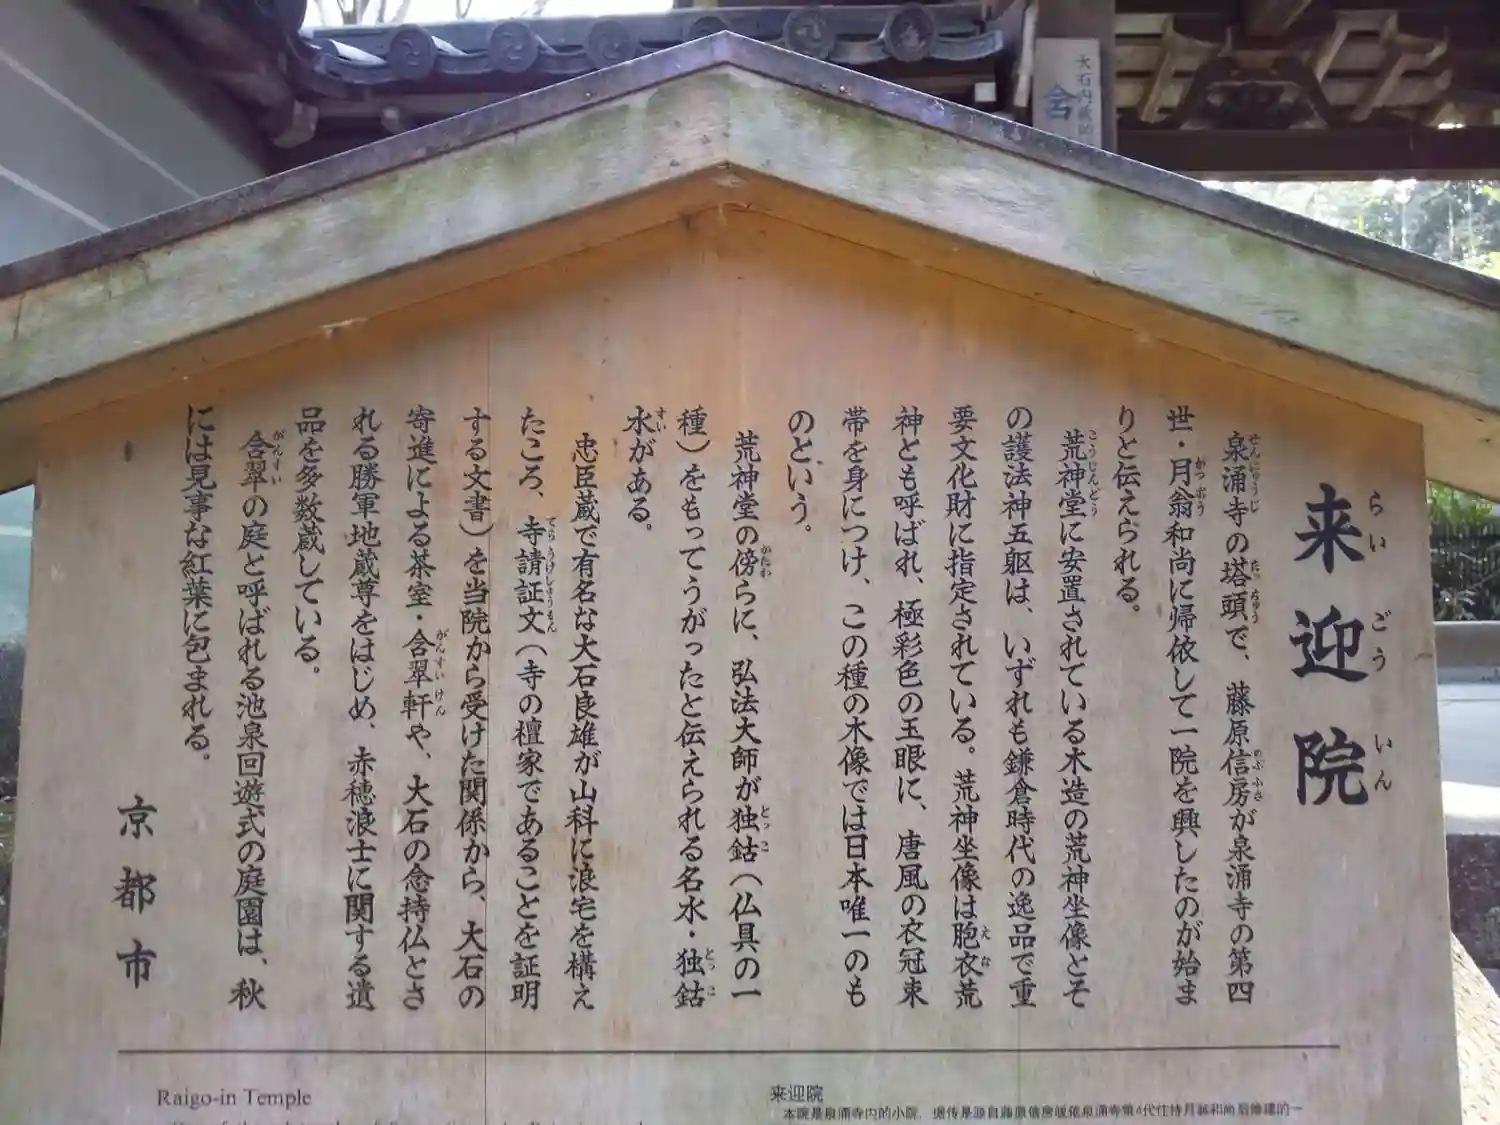 来迎院
らいごういん
泉涌寺の塔頭で、藤原信房が泉涌寺の第四
世・月翁和尚に帰依して一院を興したのが始ま
りと伝えられる。
荒神堂に安置されている木造の荒神坐像とそ
の護法神五躯は、いずれも鎌倉時代の逸品で重
要文化財に指定されている。荒神坐像は胞衣荒
神とも呼ばれ、極彩色の玉眼に、唐風の衣冠束
帯を身につけ、この種の木像では日本唯一のも
のという。
荒神堂の傍らに、弘法大師が独鈷（仏具の一
種）をもってうがったと伝えられる名水・独鈷
水がある。
忠臣蔵で有名な大石良雄が山科に浪宅を構え
たころ、寺請証文（寺の檀家であることを証明
する文書）を当院から受けた関係から、大石の
寄進による茶室・含翠軒や、大石の念持仏とさ
れる勝軍地蔵尊をはじめ、赤穂浪士に関する遺
品を多数蔵している。
含翠の庭と呼ばれる池泉回遊式の庭園は、秋
には見事な紅葉に包まれる。
京都市
Raigo-in Temple
来迎院